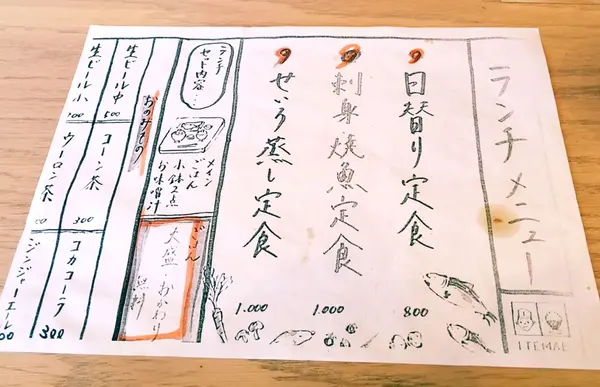 ランチメニュー
ITEMAE
日替り定食
800
刺身焼魚定食
1.000
せいろ蒸し定食
1.000
ランチ
セット内容
メイン
ごはん
小鉢2点
お味噌汁
ごはん
大盛・おかわり
無料
おのみもの
生ビール中
500
コーン茶
300
コカコーラ
300
生ビール小
ウーロン茶
ジンジャーエール